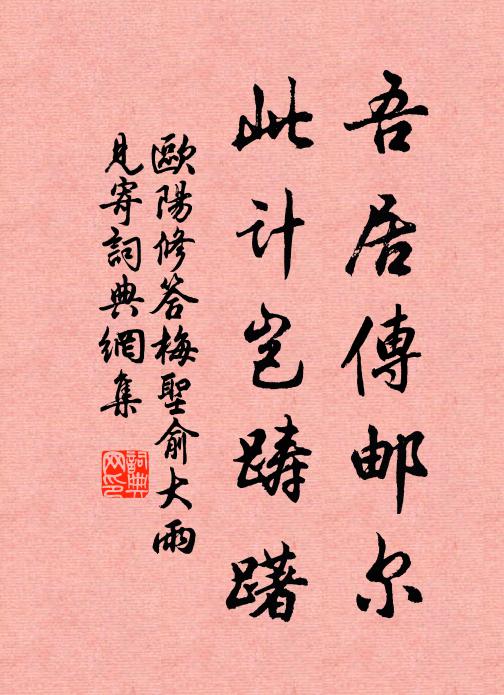 吾居傳邮尔
此计岂踌躇
歐陽修答梅聖俞大雨
見寄詞典網集
詞典
网印